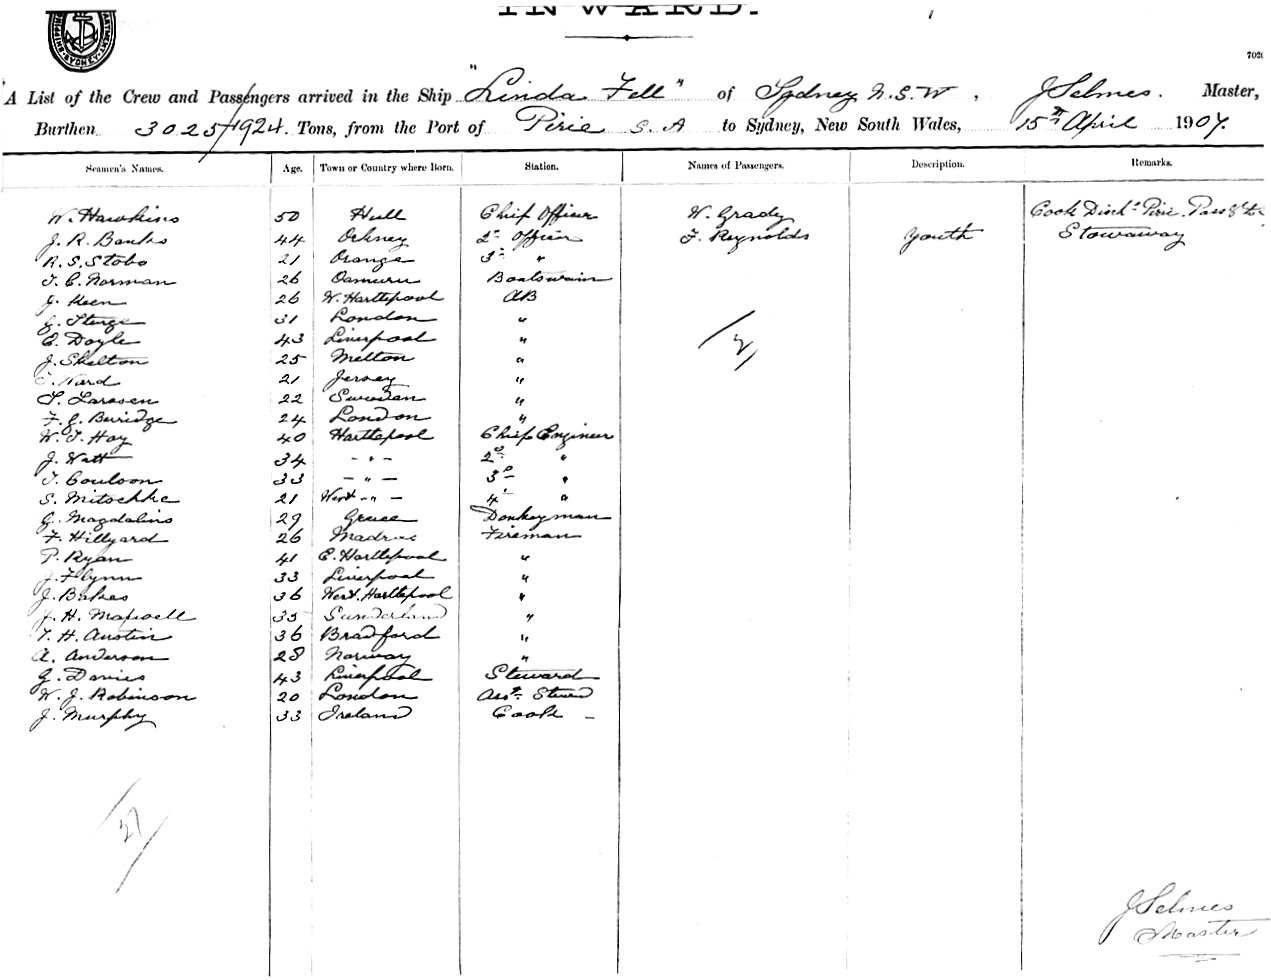 INWARD.
SHIPPING DEPARTMENT SYDNEY
A List of the Crew and Passengers arrived in the Ship "Linda Fell" of Sydney N.S.W, J Selmes. Master,
Burthen 3025/1924. Tons, from the Port of Pirie S.A to Sydney, New South Wales, 15th April 1907.
Seamen's Names. Age. Town or Country where Born. Station. Names of Passengers. Description. Remarks.
W. Hawkins 50 Hull Chief Officer W. Grady Cook Disch'd Pirie. Pass'g'r to
J. R. Banks 44 Orkney 2nd Officer F. Reynolds Youth Stowaway
R. S. Stobo 21 Orange 3rd "
T. C. Norman 26 Oamuru Boatswain
J. Keen 26 W. Hartlepool AB
G. Sturge 31 London "
E. Doyle 43 Liverpool "
J. Skelton 25 Melton "
Ward 21 Jersey "
L. Larssen 22 Sweden "
F. G. Berridge 24 London "
W. T. Hay 40 Hartlepool Chief Engineer
J. Watt 34 - " - 2nd "
T. Coulson 33 - " - 3rd "
S. Mitschke 21 West - " - 4th "
G. Magdalino 29 Greece Donkeyman
F. Hillyard 26 Madras Fireman
P. Ryan 41 E. Hartlepool "
J. Flynn 33 Liverpool "
J. Bakes 36 West. Hartlepool "
J. H. Maxwell 35 Sunderland "
T. H. Austin 36 Bradford "
A. Anderson 28 Norway "
G. Davies 43 Liverpool Steward
W. J. Robinson 20 London Asst Steward
J. Murphy 33 Ireland Cook -
2
27
J Selmes
Master